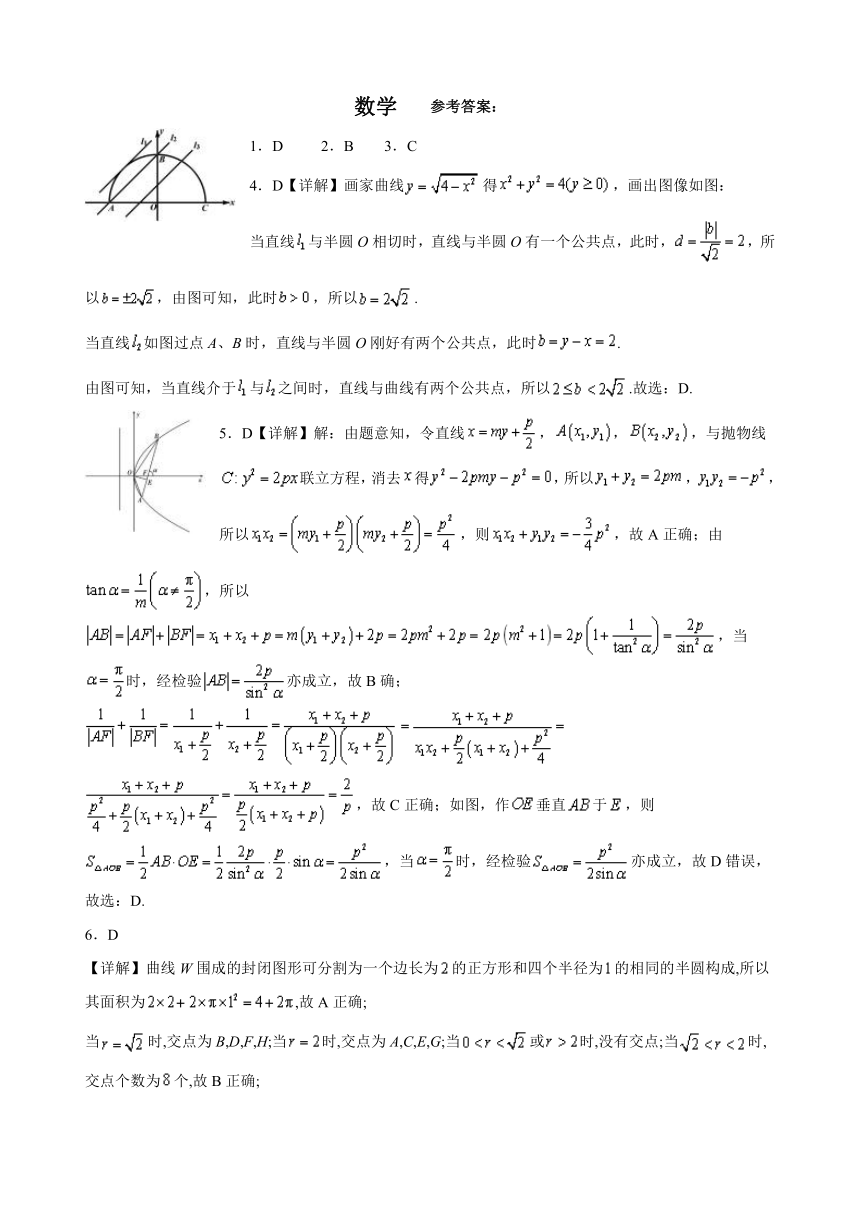 数学 参考答案：
1．D 2．B 3．C
4．D【详解】画家曲线y = √(4 − x²) 得x² + y² = 4(y ≥ 0)，画出图像如图：
当直线l₁与半圆 O 相切时，直线与半圆 O 有一个公共点，此时，d = |b|/√2 = 2，所
以b = ±2√2，由图可知，此时b > 0，所以b = 2√2 .
当直线l₂如图过点 A、B 时，直线与半圆 O 刚好有两个公共点，此时b = y − x = 2.
由图可知，当直线介于l₁与l₂之间时，直线与曲线有两个公共点，所以2 ≤ b < 2√2 .故选：D.
5．D【详解】解：由题意知，令直线x = my + p/2，A(x₁,y₁)，B(x₂,y₂)，与抛物线
C: y² = 2px联立方程，消去x得y² − 2pmy − p² = 0，所以y₁ + y₂ = 2pm，y₁y₂ = −p²，
所以x₁x₂ = (my₁ + p/2)(my₂ + p/2) = p²/4，则x₁x₂ + y₁y₂ = −3/4 p²，故 A 正确；由
tan α = 1/m (α ≠ π/2)，所以
|AB| = |AF| + |BF| = x₁ + x₂ + p = m(y₁ + y₂) + 2p = 2pm² + 2p = 2p(m² + 1) = 2p(1 + 1/tan² α) = 2p/sin² α，当
α = π/2时，经检验|AB| = 2p/sin² α亦成立，故 B 确；
1/|AF| + 1/|BF| = 1/(x₁ + p/2) + 1/(x₂ + p/2) = (x₁ + x₂ + p)/((x₁ + p/2)(x₂ + p/2)) = (x₁ + x₂ + p)/(x₁x₂ + p/2(x₁ + x₂) + p²/4) =
(x₁ + x₂ + p)/(p²/4 + p/2(x₁ + x₂) + p²/4) = (x₁ + x₂ + p)/(p/2(x₁ + x₂ + p)) = 2/p，故 C 正确；如图，作OE垂直AB于E，则
S△AOE = 1/2 AB·OE = 1/2 · 2p/sin² α · p/2 · sin α = p²/(2 sin α)，当α = π/2时，经检验S△AOE = p²/(2sin α)亦成立，故 D 错误，
故选：D.
6．D
【详解】曲线 W 围成的封闭图形可分割为一个边长为2的正方形和四个半径为1的相同的半圆构成,所以
其面积为2×2+2×π×1² = 4+2π,故 A 正确;
当r = √2 时,交点为 B,D,F,H;当r = 2时,交点为 A,C,E,G;当0 < r < √2 或r > 2时,没有交点;当√2 < r < 2时,
交点个数为8个,故 B 正确;